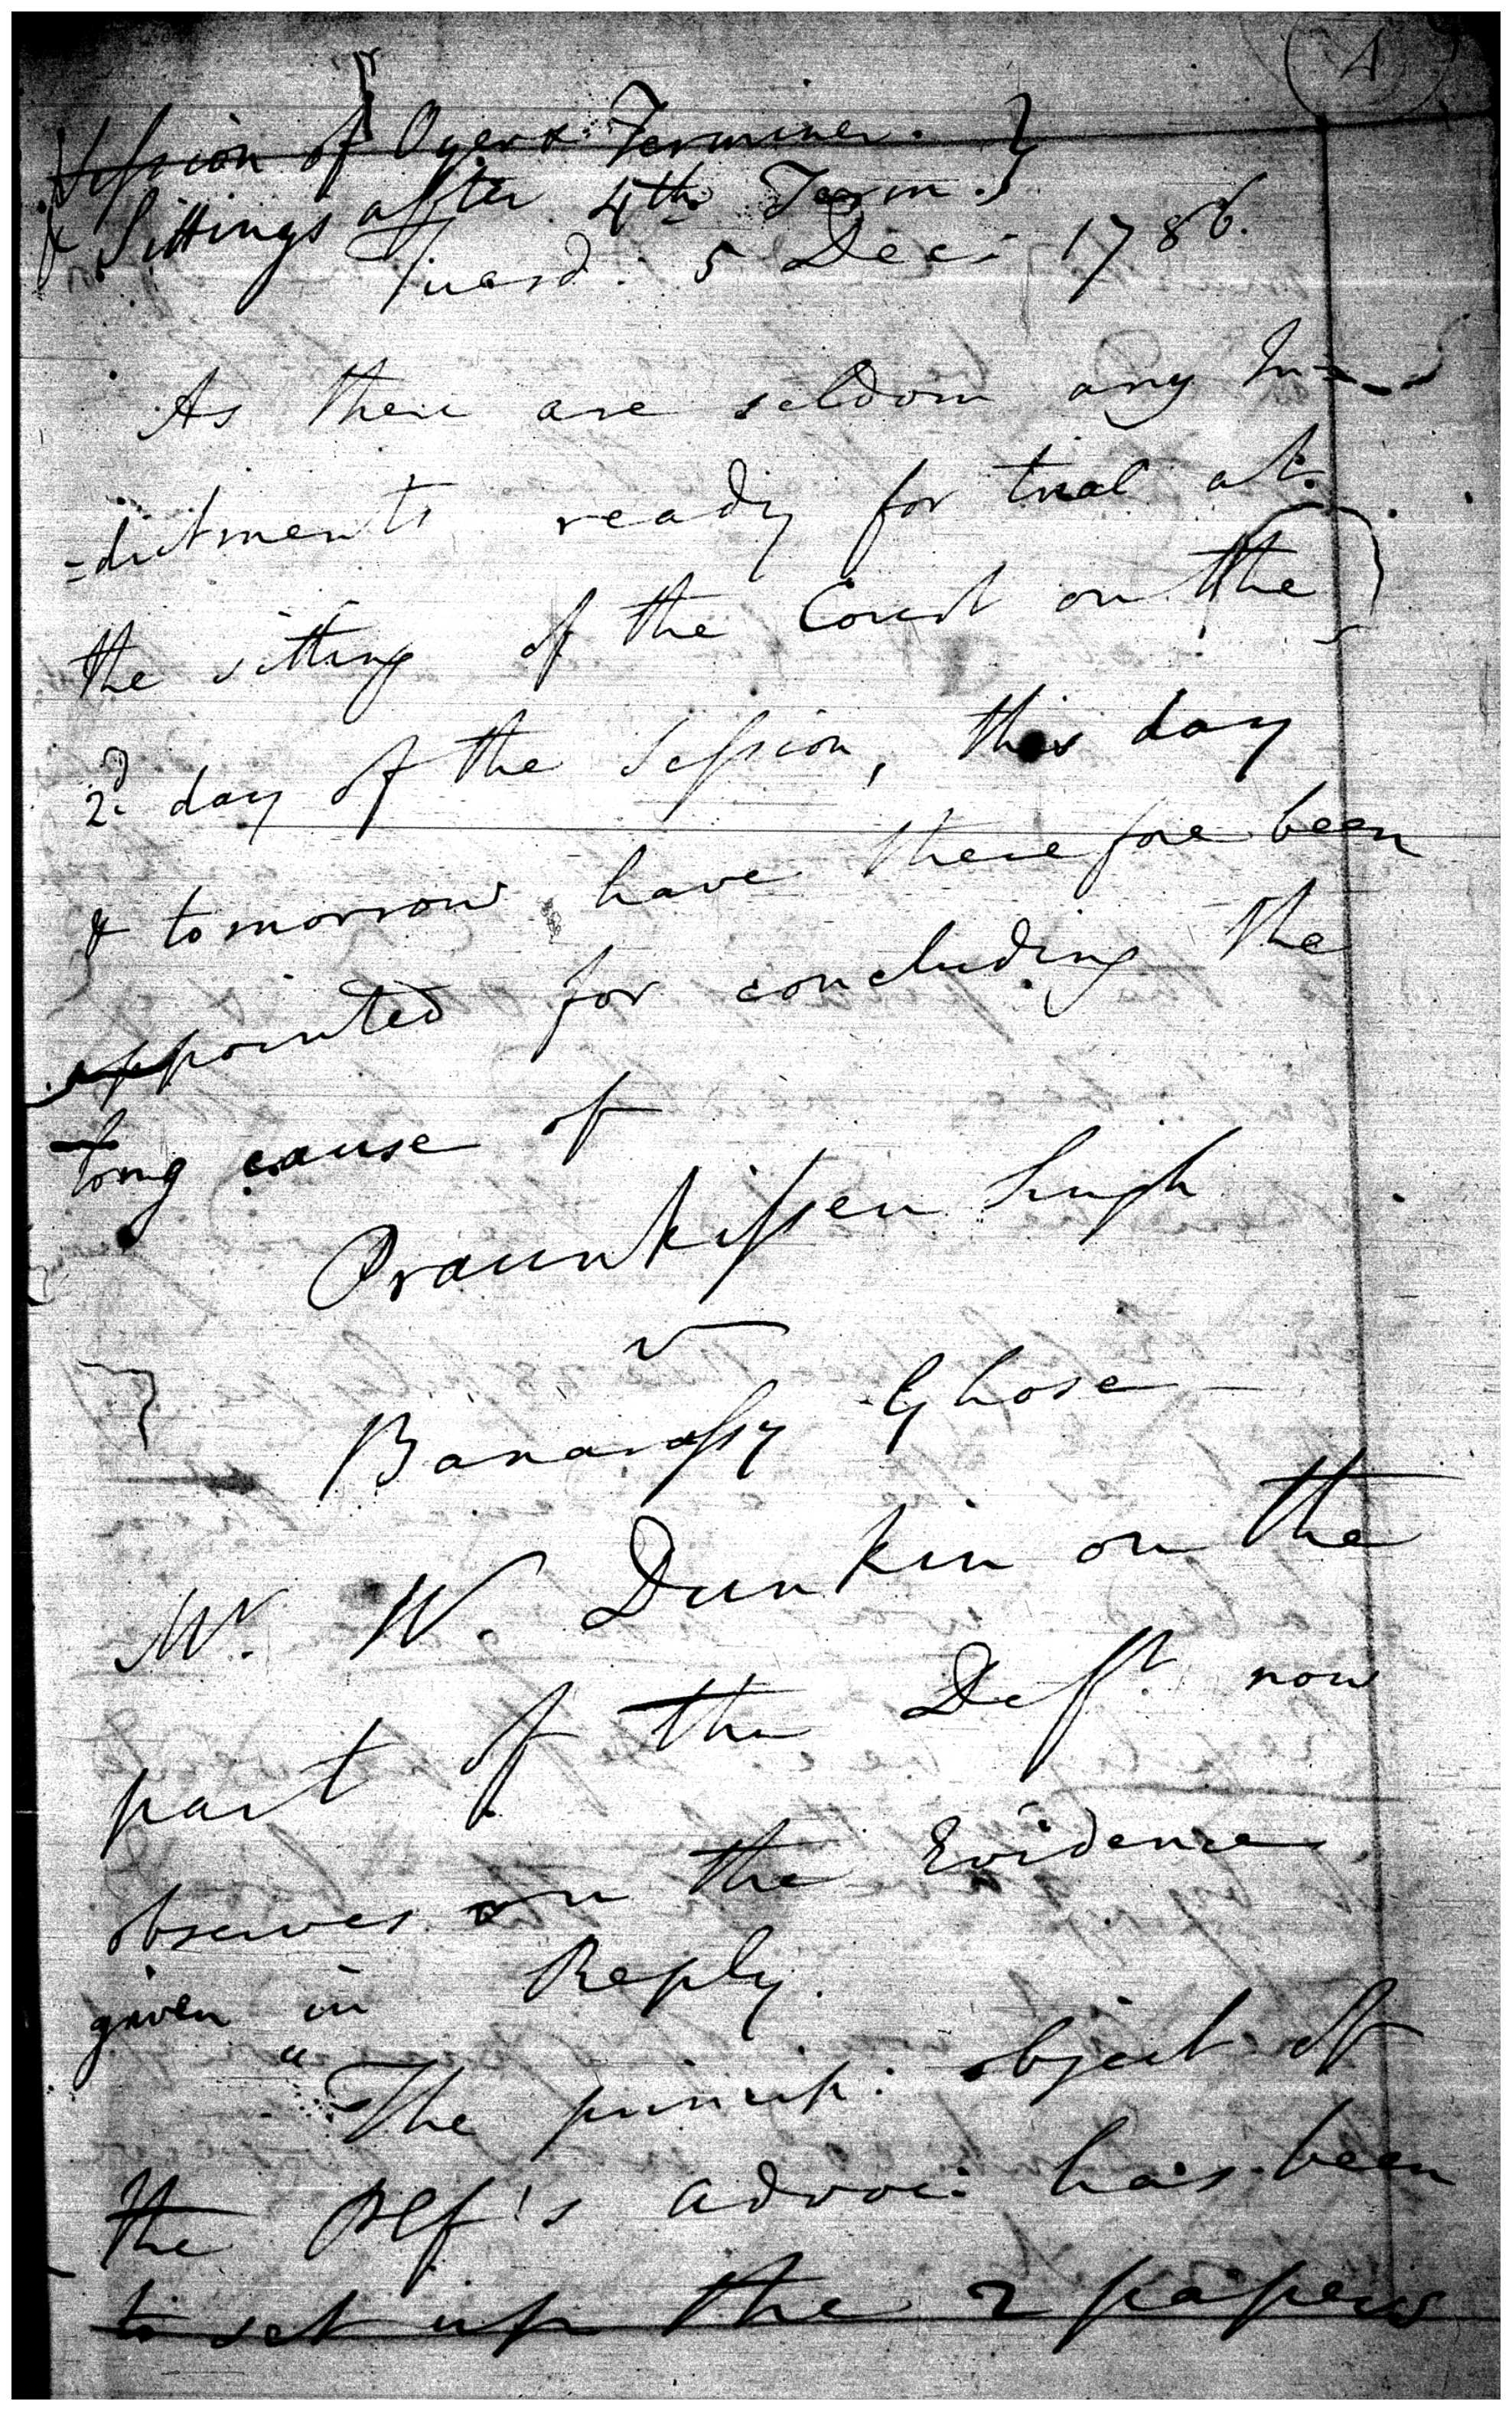 A
Session of Oyer & Terminer. }
& Sittings after 4th Term. }
Tuesd: 5 Dec: 1786.
As there are seldom any In=
=dictments ready for trial at
the sitting of the Court on the
2d. day of the Session, this day
& tomorrow have therefore been
appointed for concluding the
long cause of
Praunkissen Singh
v
Banarassy Ghose
Mr. W. Dunkin on the
part of the Deft. now
observes on the Evidence
given in Reply.
"The princip: object of
the Plf's advoc: has been
to set up the 2 papers